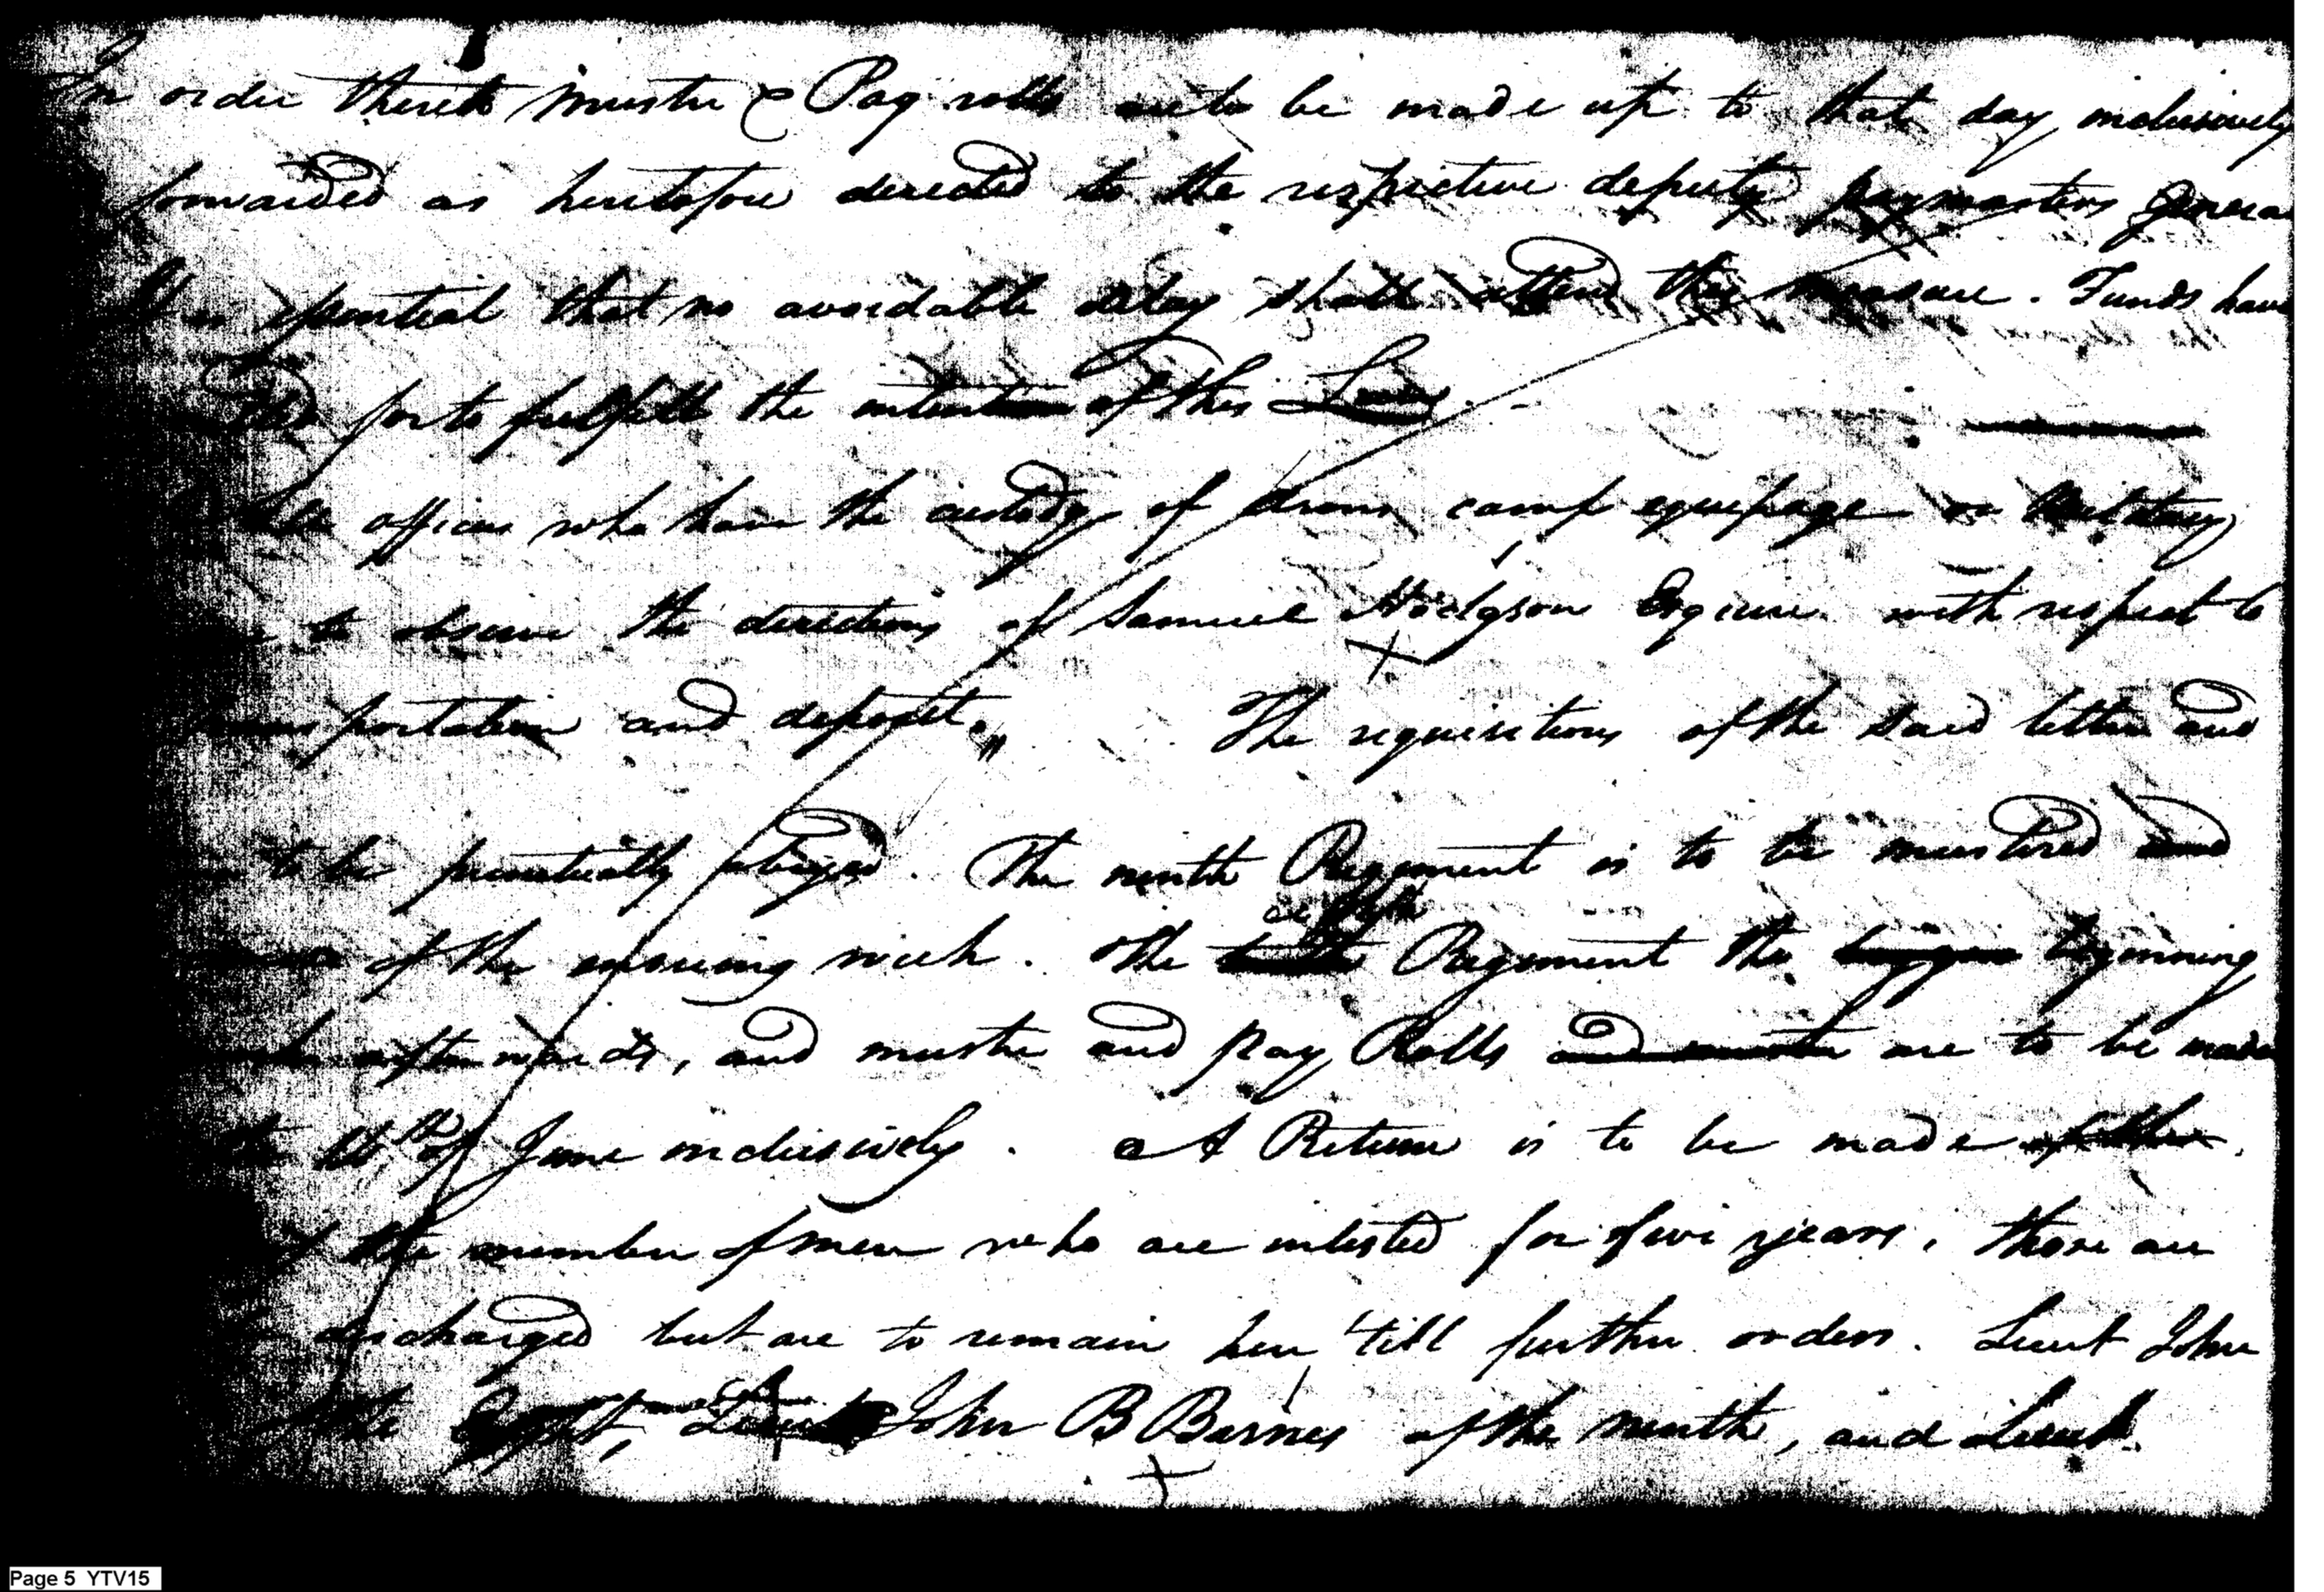 In order thereto Muster & Pay rolls are to be made up to that day inclusively
forwarded as heretofore directed to the respective deputy paymasters General
It is essential that no avoidable delay shall attend this measure. Funds have
for to fulfill the intention of this Law.
officers who have the custody of arms camp equipage or Military
to observe the directions of Samuel Hodgson Esquire with respect to
transportation and deposit." The requisitions of the said letter and
to be punctually obeyed. The ninth Regiment is to be mustered and
of the ensuing week. The Regiment the beginning
afterwards, and muster and pay Rolls and muster are to be made
the 14th of June inclusively. A Return is to be made of the
of the number of men who are inlisted for five years, those are
discharged but are to remain here 'till further orders. Lieut John
the Eight, Lieut John B Barnes of the ninth, and Lieut.
Page 5 YTV15